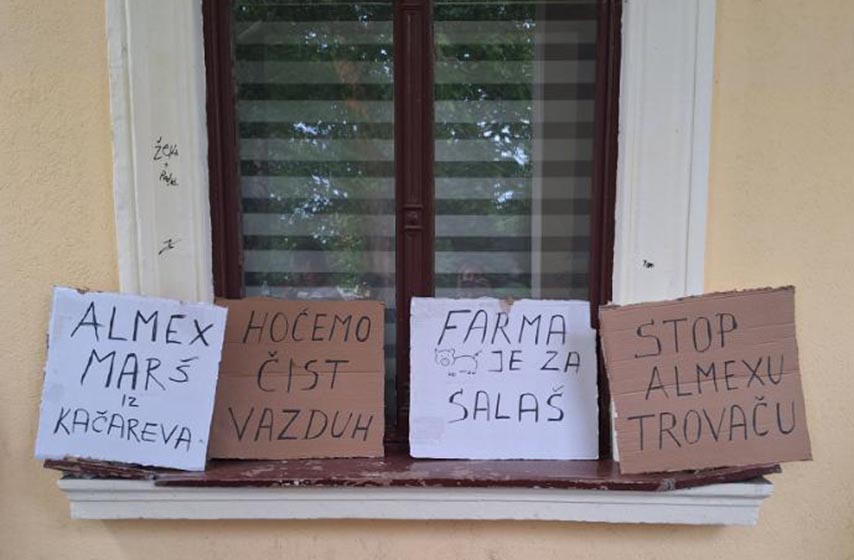 ALMEX
MARŠ
IZ
KAČAREVA.
HOĆEMO
ČIST
VAZDUH
FARMA
JE ZA
SALAŠ
STOP
ALMEXU
TROVAČU